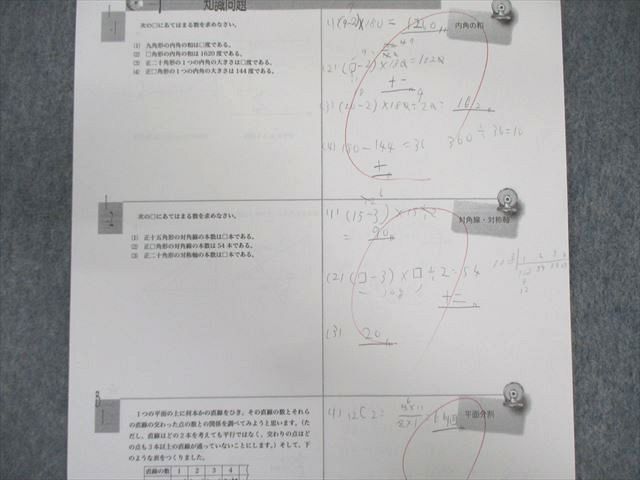 知識問題
次の□にあてはまる数を求めなさい。
(1) 九角形の内角の和は□度である。
(2) □角形の内角の和は 1620 度である。
(3) 正二十角形の1つの内角の大きさは□度である。
(4) 正□角形の1つの内角の大きさは 144 度である。
内角の和
(1) (9-2)×180 = 1260
(2) (□-2)×180=1620
十一
(3) (20-2)×180÷20=162
(4) 180-144=36 360÷36=10
十
次の□にあてはまる数を求めなさい。
(1) 正十五角形の対角線の本数は□本である。
(2) 正□角形の対角線の本数は 54 本である。
(3) 正二十角形の対称軸の本数は□本である。
対角線・対称軸
(1) (15-3)×15÷2
= 90
(2) (□-3)×□÷2=54
108
十二
(3) 20
1つの平面の上に何本かの直線をひき、その直線の数とそれら
の直線の交わった点の数との関係を調べてみようと思います。(た
だし、直線はどの2本を考えても平行ではなく、交わりの点はど
の点も3本以上の直線が通っていないことにします。)そして、下
のような表をつくりました。
直線の数 1 2 3 4
平面分割
(1) 12C2=